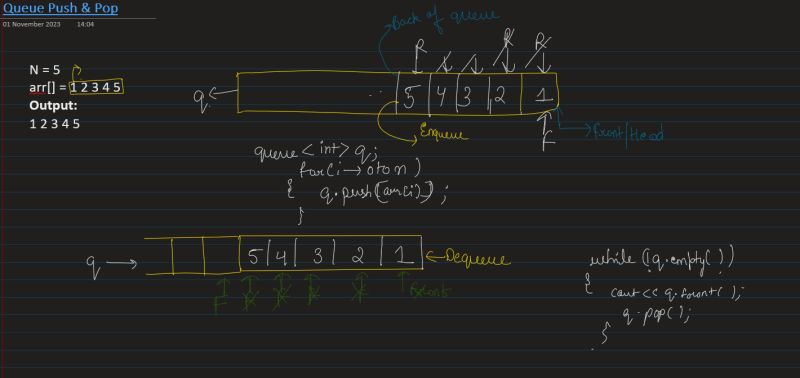 Queue Push & Pop
01 November 2023 14:04
N = 5
arr[] = 1 2 3 4 5
Output:
1 2 3 4 5
Back of queue
R R R
q
5 4 3 2 1
Enqueue
F
Front/Head
queue <int> q;
for(i→0 to n)
{ q.push(arr[i]);
}
q
5 4 3 2 1
Dequeue
F
front
while (!q.empty())
{
cout << q.front();
q.pop();
}